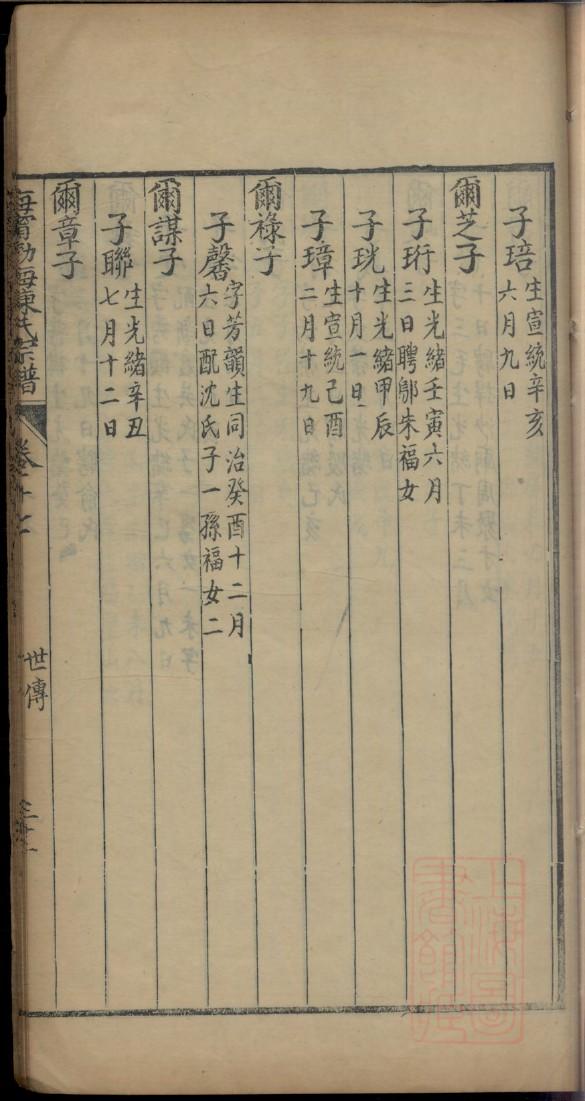 子琣生宣統辛亥
六月九日
爾芝子
子珩生光緒壬寅六月
三日聘鄔朱福女
子珖生光緒甲辰
十月一日
子璋生宣統己酉
二月十九日
爾祿子
子馨字芳韻生同治癸酉十二月
六日配沈氏子一孫福女二
爾謀子
子聯生光緒辛丑
七月十二日
爾章子
海甯 海陳氏宗譜
卷十七
世傳
上海圖書館藏